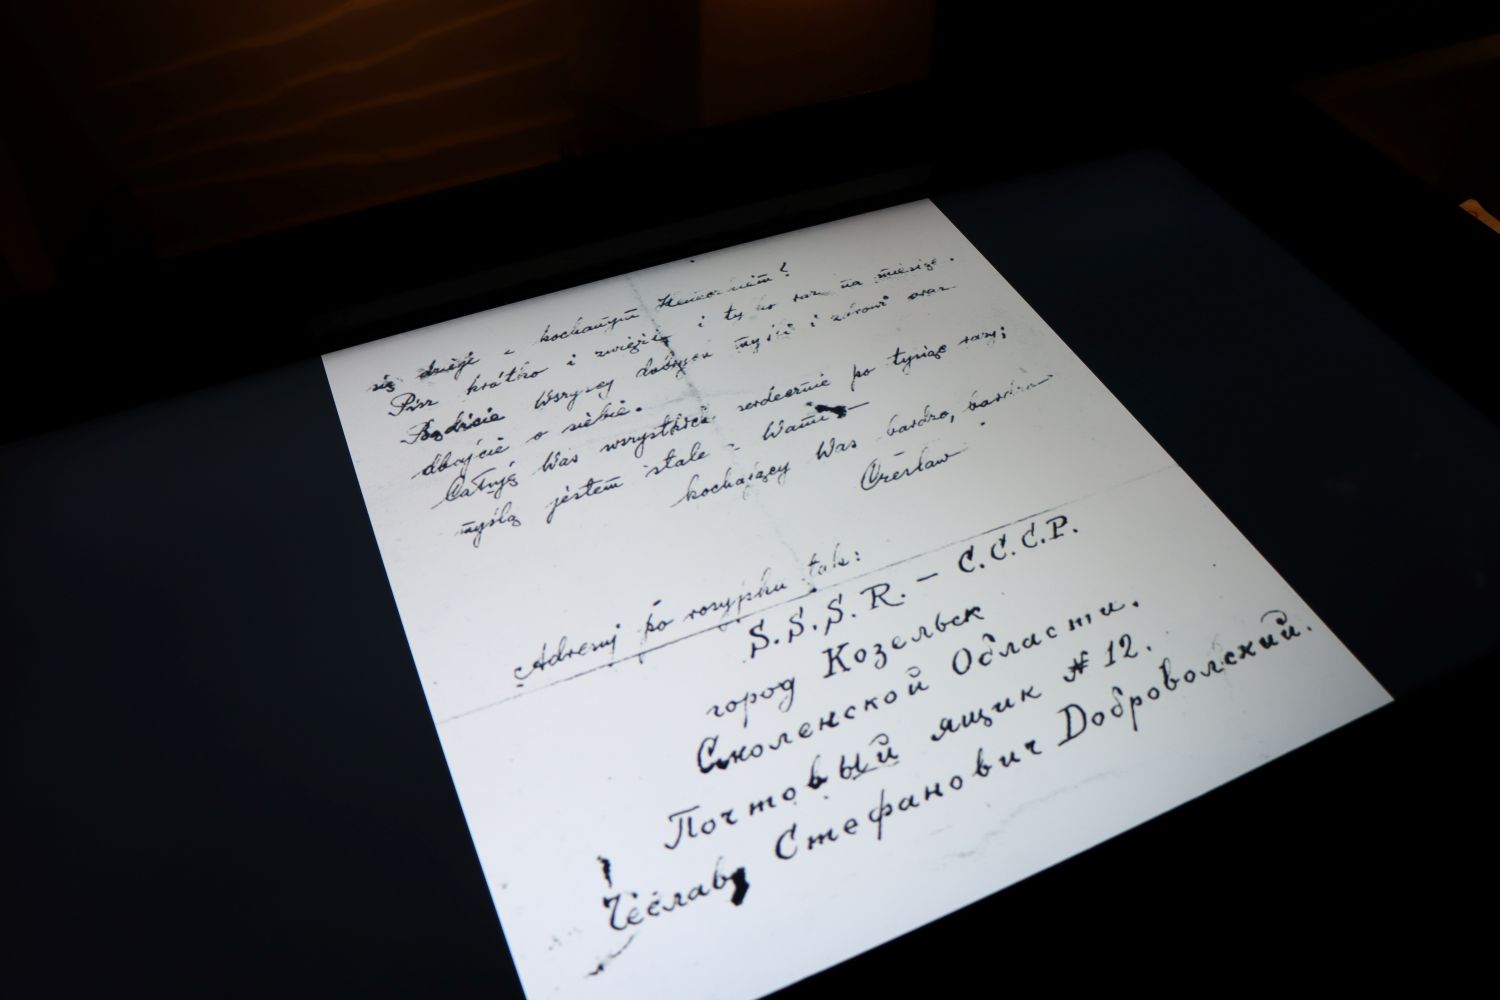 się dzieje z kochanym Heniorkiem?
Pisz krótko i zwięźle i tylko raz na miesiąc.
Bądźcie wszyscy dobrej myśli i zdrowi oraz
dbajcie o siebie.
Całuję Was wszystkich serdecznie po tysiąc razy;
myślą jestem stale z Wami –
kochający Was bardzo, bardzo
Czesław
Adresuj po rosyjsku tak:
S.S.S.R. – С.С.С.Р.
город Козельск
Смоленской Области.
Почтовый ящик № 12.
Чеслав Стефанович Доброволский.